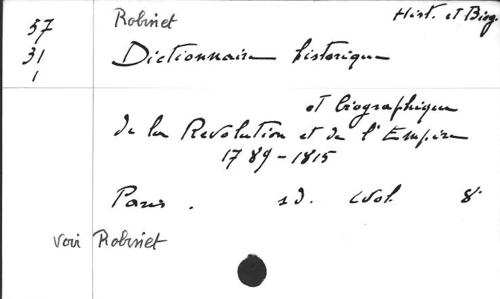 57 Robinet Hist. et Biog.
31 Dictionnaire historique
1
et biographique
de la Revolution et de l'Empire
1789-1815
Paris . sd. 2 vol. 8°
voir Robinet